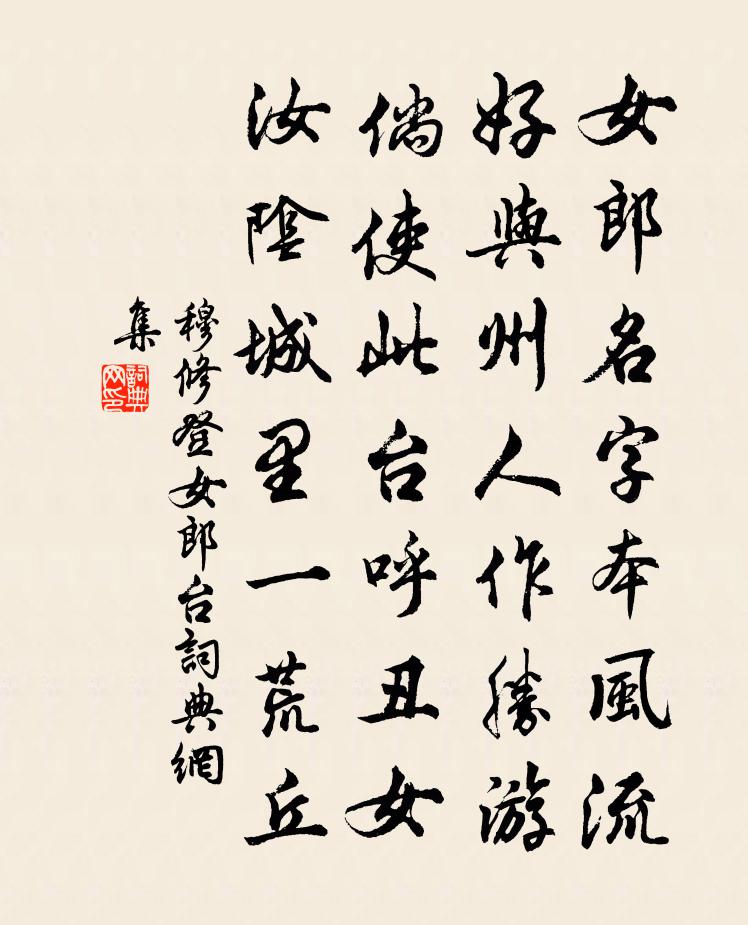 女郎名字本風流
好與州人作勝游
倘使此台呼丑女
汝陰城里一荒丘
穆修登女郎台詞典網
集
詞典
网印